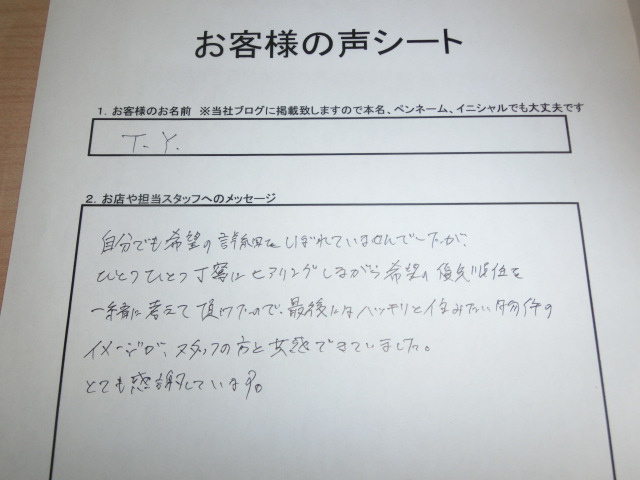 お客様の声シート
1. お客様のお名前 ※当社ブログに掲載致しますので本名、ペンネーム、イニシャルでも大丈夫です
T.Y.
2. お店や担当スタッフへのメッセージ
自分でも希望の詳細をしぼれていませんでしたが、
ひとつひとつ丁寧にヒアリングしながら希望の優先順位を
一緒に考えて頂けたので、最後にはハッキリと住みたい物件の
イメージが、スタッフの方と共感できていました。
とても感謝しています。